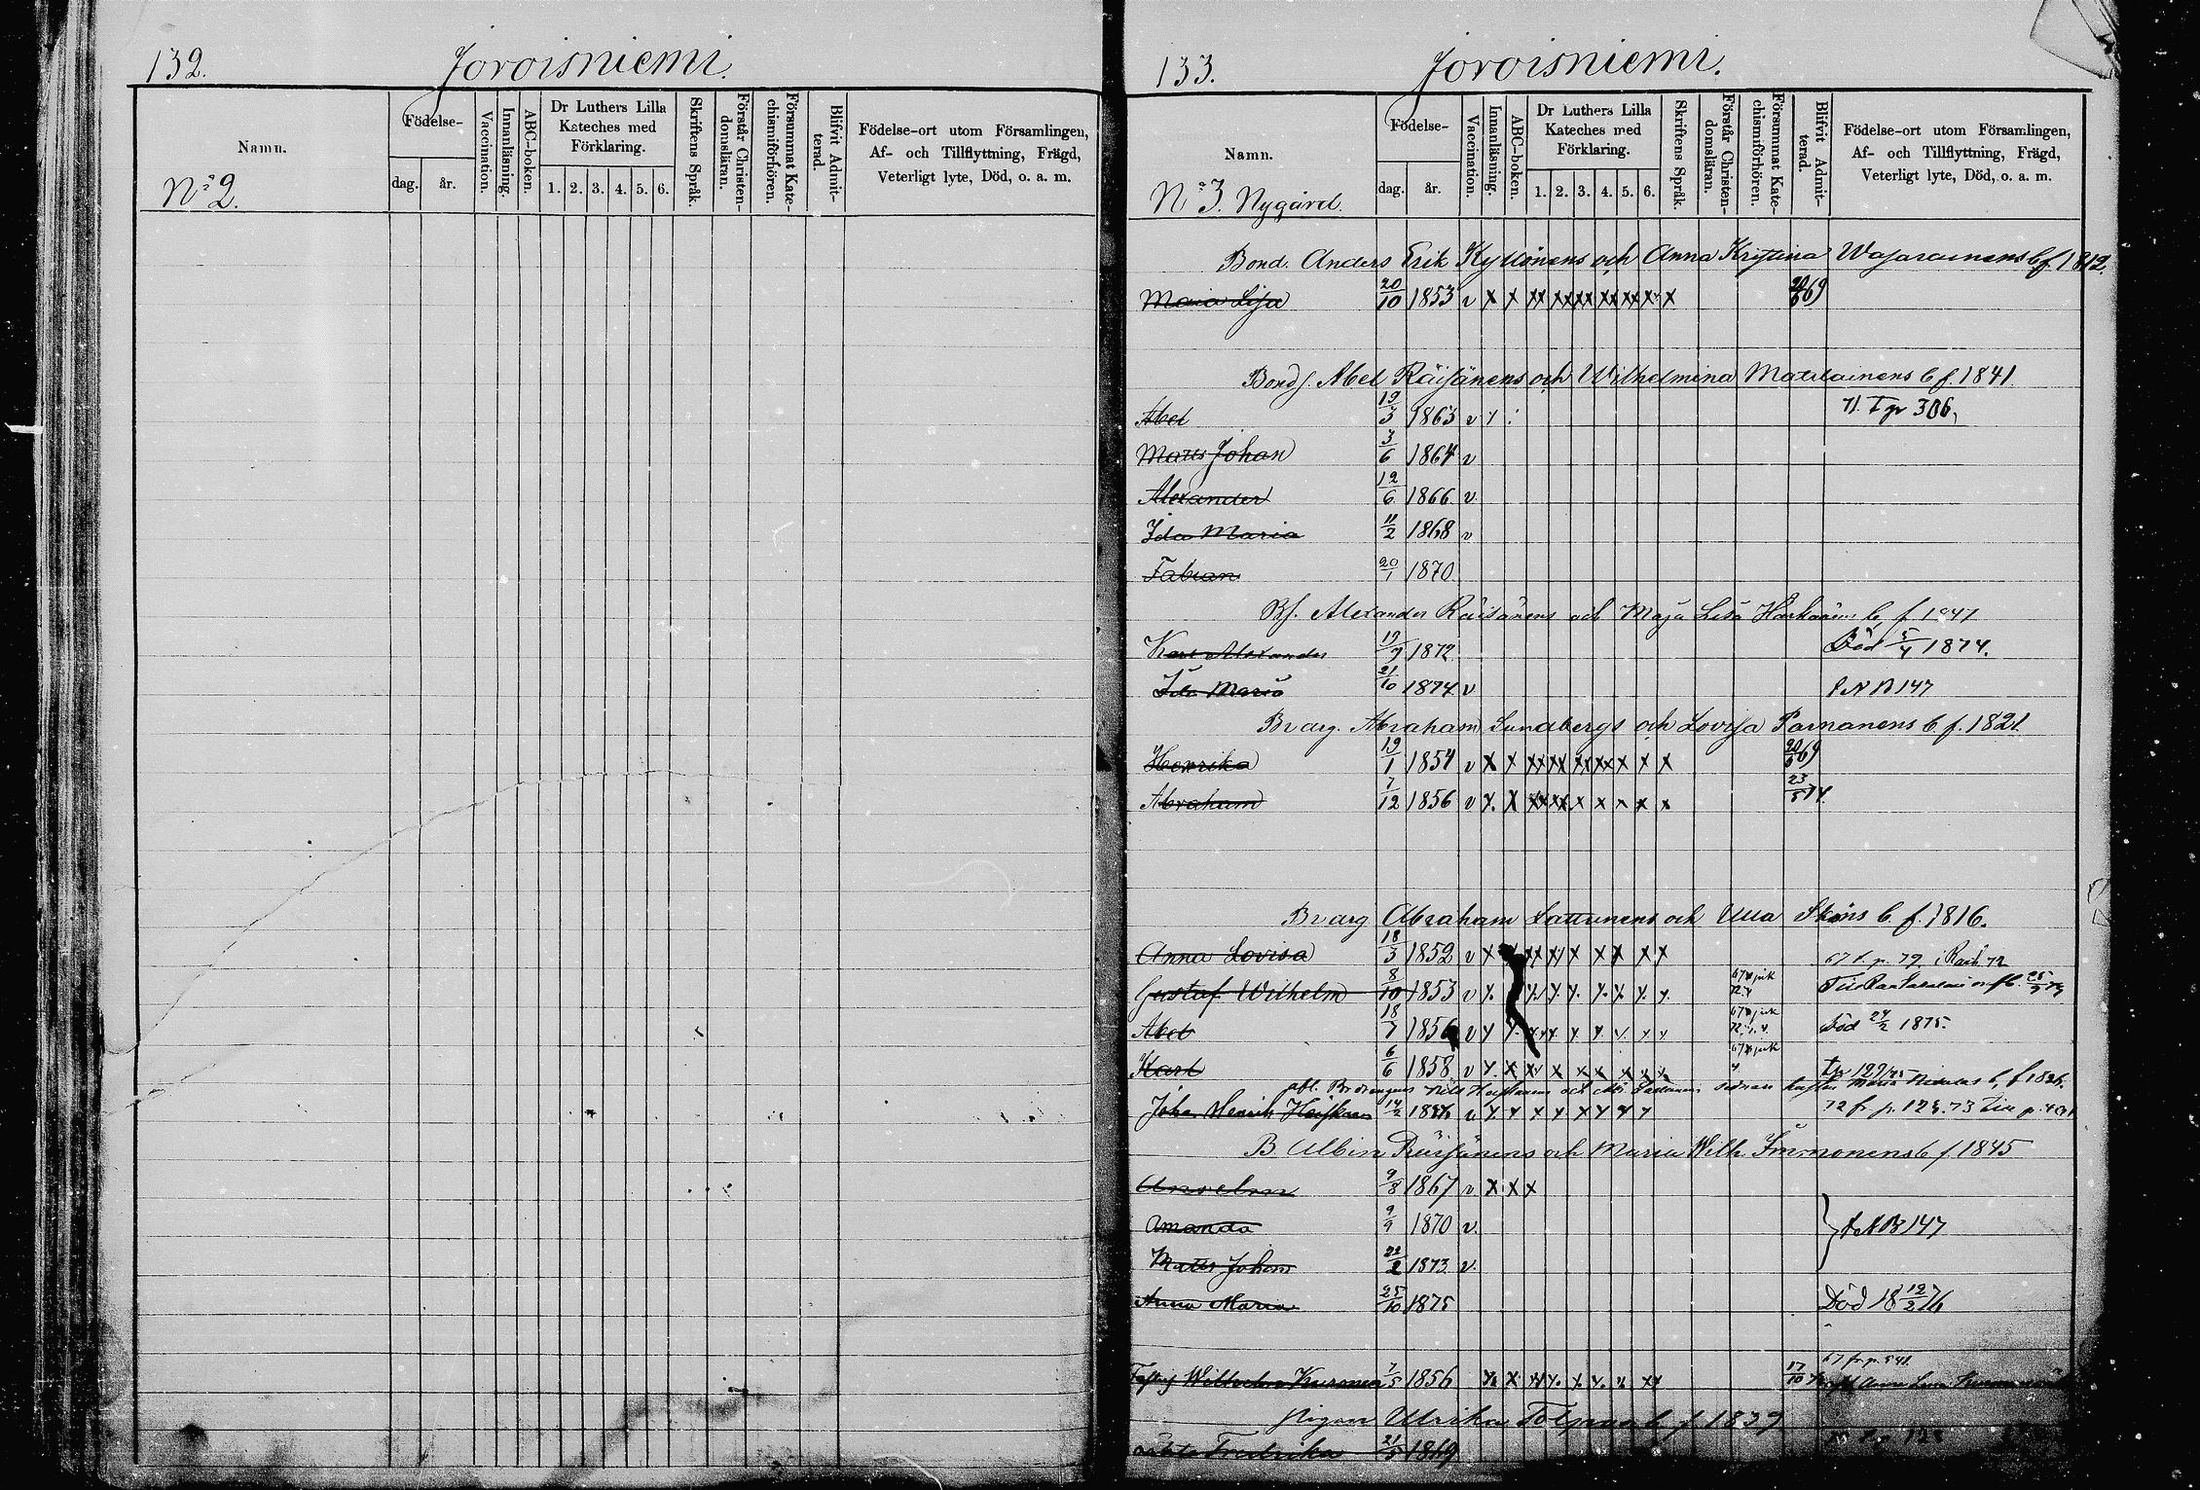 132.
Joroisniemi.
Namn.
Födelse-
dag. år.
Vaccination.
Innanläsning.
ABC-boken.
Dr Luthers Lilla Kateches med Förklaring.
1. 2. 3. 4. 5. 6.
Skriftens Språk.
Förstår Christen-domsläran.
Försummat Kate-chismiförhören.
Blifvit Admit-terad.
Födelse-ort utom Församlingen,
Af- och Tillflyttning, Frägd,
Veterligt lyte, Död, o. a. m.
No 2.
133.
Joroisniemi.
Namn.
Födelse-
dag. år.
Vaccination.
Innanläsning.
ABC-boken.
Dr Luthers Lilla Kateches med Förklaring.
1. 2. 3. 4. 5. 6.
Skriftens Språk.
Förstår Christen-domsläran.
Försummat Kate-chismiförhören.
Blifvit Admit-terad.
Födelse-ort utom Församlingen,
Af- och Tillflyttning, Frägd,
Veterligt lyte, Död, o. a. m.
No 3. Nygård.
Bond. Anders Erik Kyllönens och Anna Kristina b f. 1812.
Maria Lisa 20/10 1853 v x x xx xx xx xx xx x x 69
Bonds. Abel Räisänens och Wilhelmina Matilainens b f. 1841
Abel 19/3 1863 v 71. T. p. 306.
Matts Johan 3/6 1864 v
Alexander 12/6 1866 v.
Ida Maria 11/2 1868 v
Fabian 20/1 1870
Bf. Alexander Räisänens och Maja Lisa b. f 1847
Karl Alexander 19/9 1872 Död 5/4 1874.
Ida Maria 21/10 1874 v B 147
Br arg. Abraham Sundbergs och Lovisa Parnanens b f. 1821
Henrika 19/1 1854 v x x xx xx xx xx x x x 69
Abraham 7/12 1856 v x. x xx xx x x x x x 23/5 74.
Br arg Abraham Lattunens och Ulla Sköns b f. 1816.
Anna Lovisa 18/3 1852 v x xx xx x x x x x 67 t. p. 79
Gustaf Wilhelm 8/10 1853 v x. x. x. x. x. x. x. x.
Abel 18/7 1856 v x x x x x x x x Död 24/2 1875.
Karl 6/6 1858 v x. x x x x x x x
Johan Henrik 14/2 v x x x x x x x x 72 fr p. 73 p.
B. Albin Räisänens och Maria Wilh. Immonens b f. 1845
Anselm 9/8 1867 v x x x
Amanda 9/9 1870 v. B 147
Matts Johan 22/2 1873 v.
Anna Maria 25/10 1875 Död 18 12/2 76
67 fr. p. 541.
Wilhelm Kuronen 7/5 1856 x x x x. x. x. x x 17/10
pigan Ulrika b f 1837
Fredrika 21/5 1869